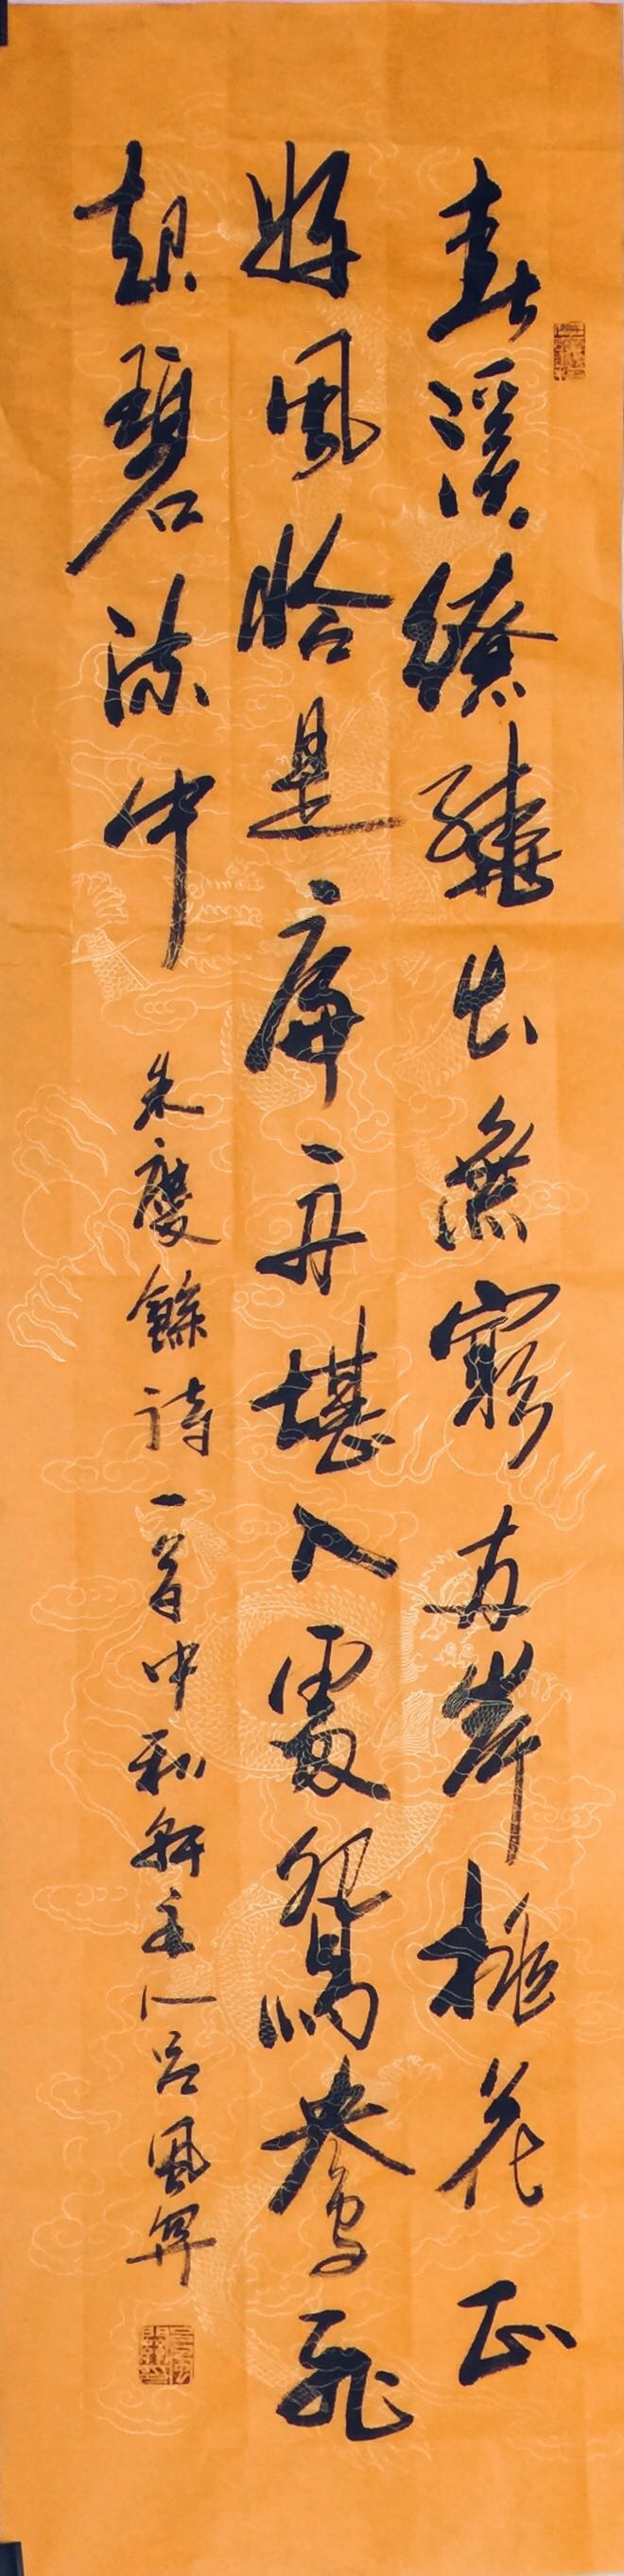 春溪繚繞出無窮兩岸桃花正
好風恰是扁舟堪入處鴛鴦飛
起碧流中 朱慶餘詩一首中和軒主人呂風